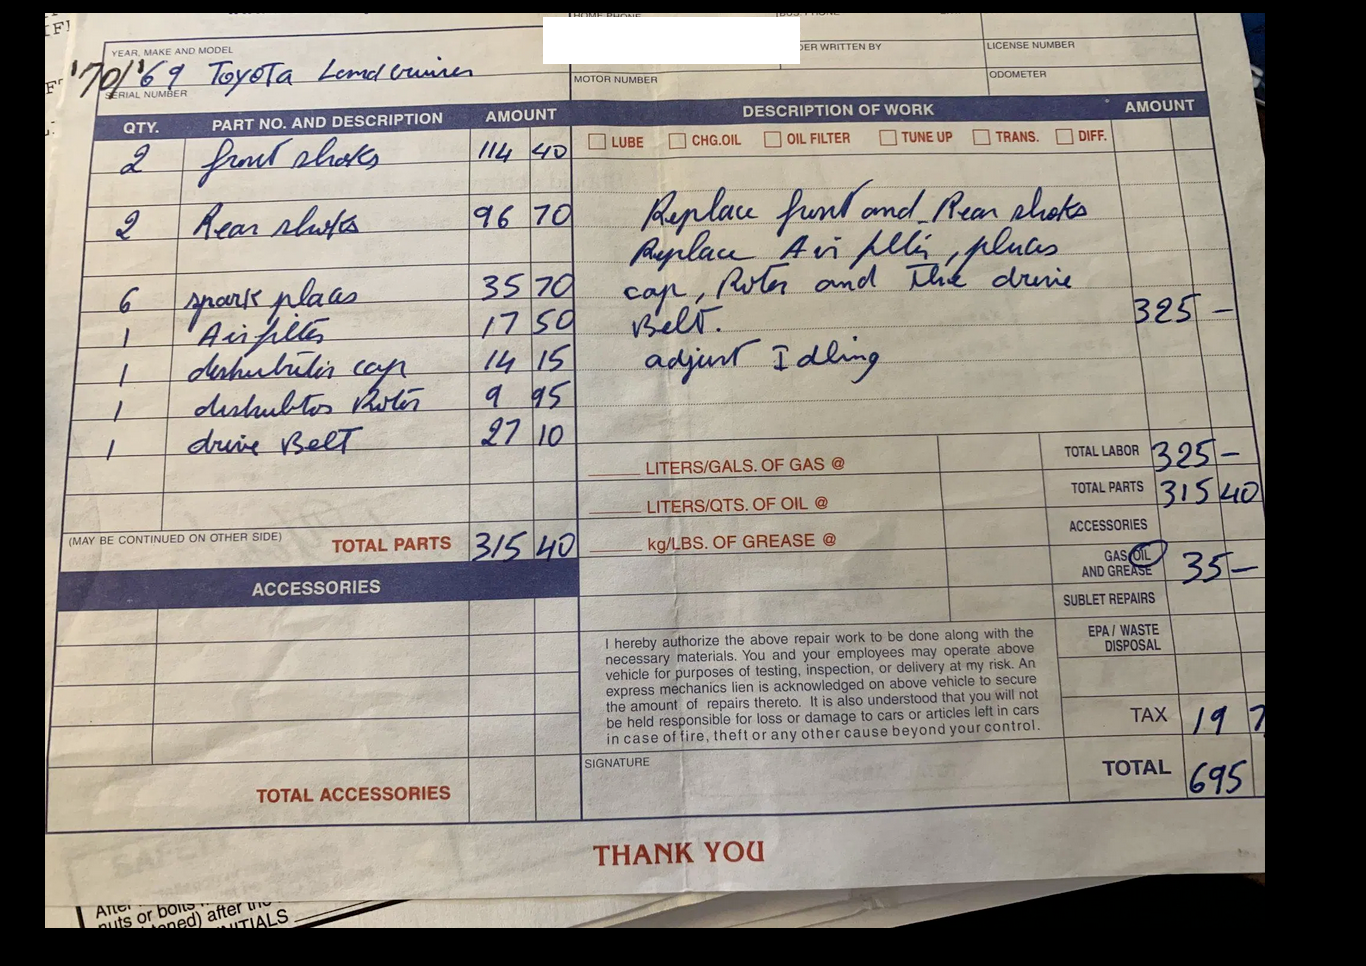 HOME PHONE
YEAR, MAKE AND MODEL
'70/'69 Toyota Landcruiser
SERIAL NUMBER
MOTOR NUMBER
WRITTEN BY
LICENSE NUMBER
ODOMETER
QTY. PART NO. AND DESCRIPTION AMOUNT
2 front shoks 114 40
2 Rear shoks 96 70
6 spark plugs 35 70
1 Air filter 17 50
1 cap 14 15
1 Rotor 9 95
1 drive Belt 27 10
(MAY BE CONTINUED ON OTHER SIDE) TOTAL PARTS 315 40
ACCESSORIES
TOTAL ACCESSORIES
DESCRIPTION OF WORK AMOUNT
LUBE CHG.OIL OIL FILTER TUNE UP TRANS. DIFF.
Replace front and Rear shoks
Replace Air filter, plugs
cap, Rotor and The drive
Belt. 325 –
adjust Idling
LITERS/GALS. OF GAS @
LITERS/QTS. OF OIL @
kg/LBS. OF GREASE @
TOTAL LABOR 325 –
TOTAL PARTS 315 40
ACCESSORIES
GAS OIL
AND GREASE 35 –
SUBLET REPAIRS
EPA / WASTE
DISPOSAL
TAX 19 7
TOTAL 695
I hereby authorize the above repair work to be done along with the
necessary materials. You and your employees may operate above
vehicle for purposes of testing, inspection, or delivery at my risk. An
express mechanics lien is acknowledged on above vehicle to secure
the amount of repairs thereto. It is also understood that you will not
be held responsible for loss or damage to cars or articles left in cars
in case of fire, theft or any other cause beyond your control.
SIGNATURE
THANK YOU
After
nuts or bolts
after the
INITIALS